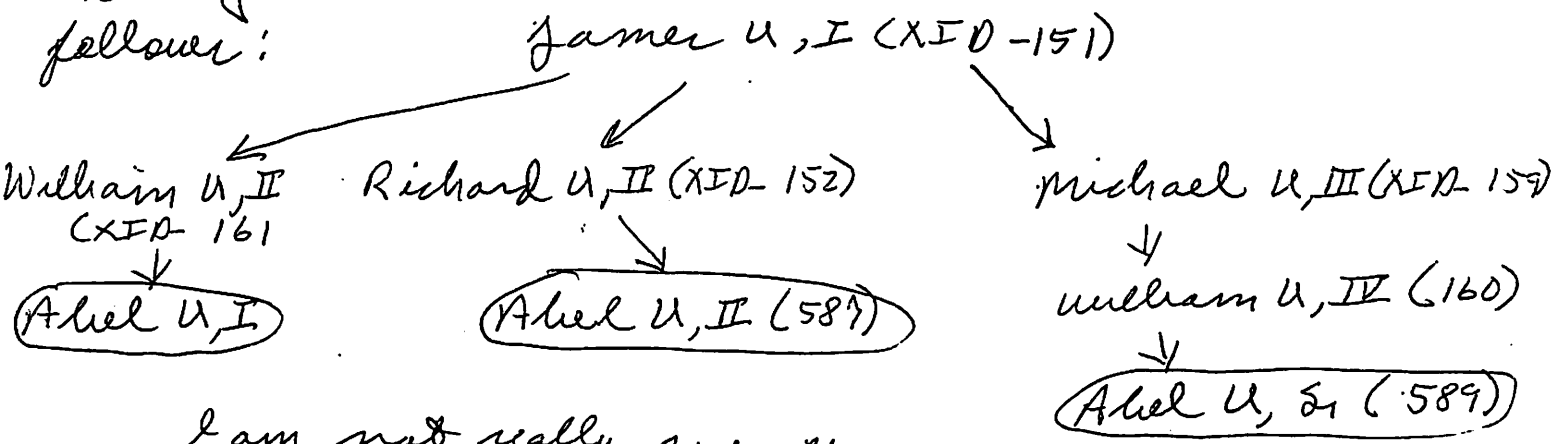 follows: James U, I (XID-151)
William U, II Richard U, II (XID-152) Michael U, III (XID-159)
(XID-161
Abel U, I Abel U, II (587) William U, IV (160)
Abel U, Sr (589)
I am not really